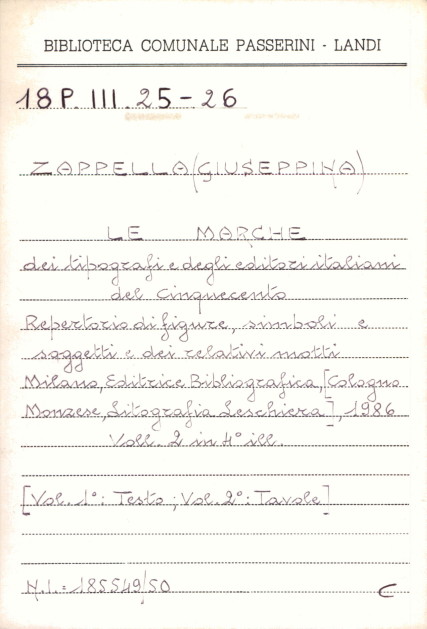 BIBLIOTECA COMUNALE PASSERINI - LANDI
18 P. III. 25-26
ZAPPELLA (GIUSEPPINA)
LE MARCHE
dei tipografi e degli editori italiani
del Cinquecento
Repertorio di figure, simboli e
soggetti e dei relativi motti
Milano, Editrice Bibliografica, [Cologno
Monzese, Litografia Leschiera], 1986
Voll. 2 in 4° ill.
[Vol. 1°: Testo; Vol. 2°: Tavole]
N.I. = 185549/50
C